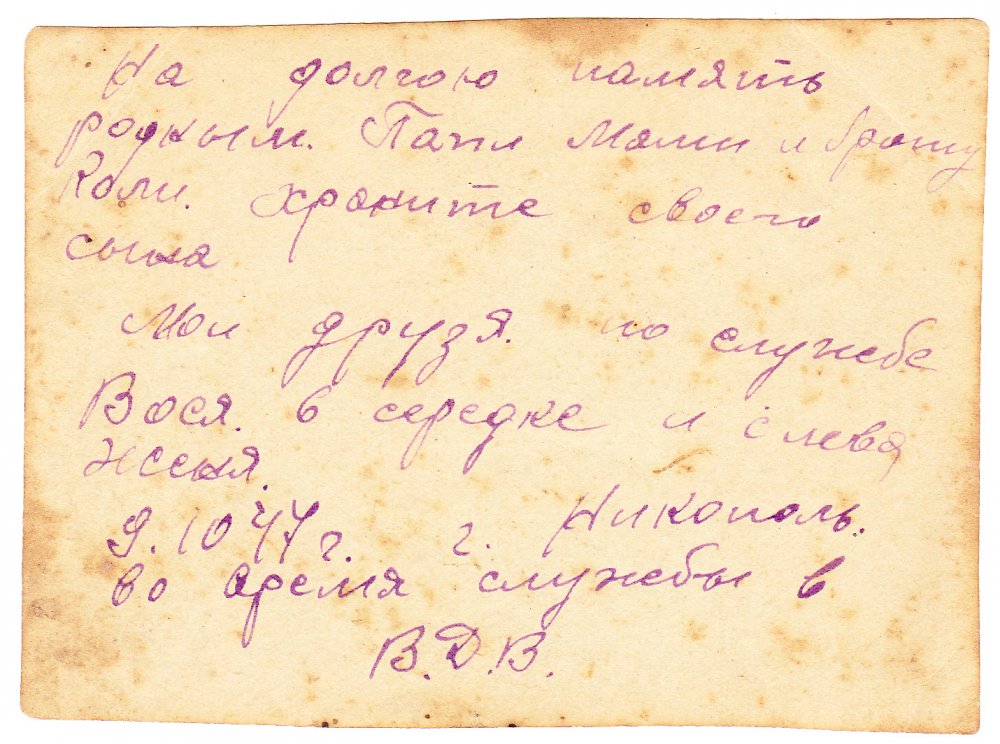 На долгою память
родным. Папи Мами и брату
Коли. храните своего
сына
Мои друзя. по службе
Вася. в середке и слева
Женя.
9.10 47 г. г. Никополь.
во время службы в
В.Д.В.